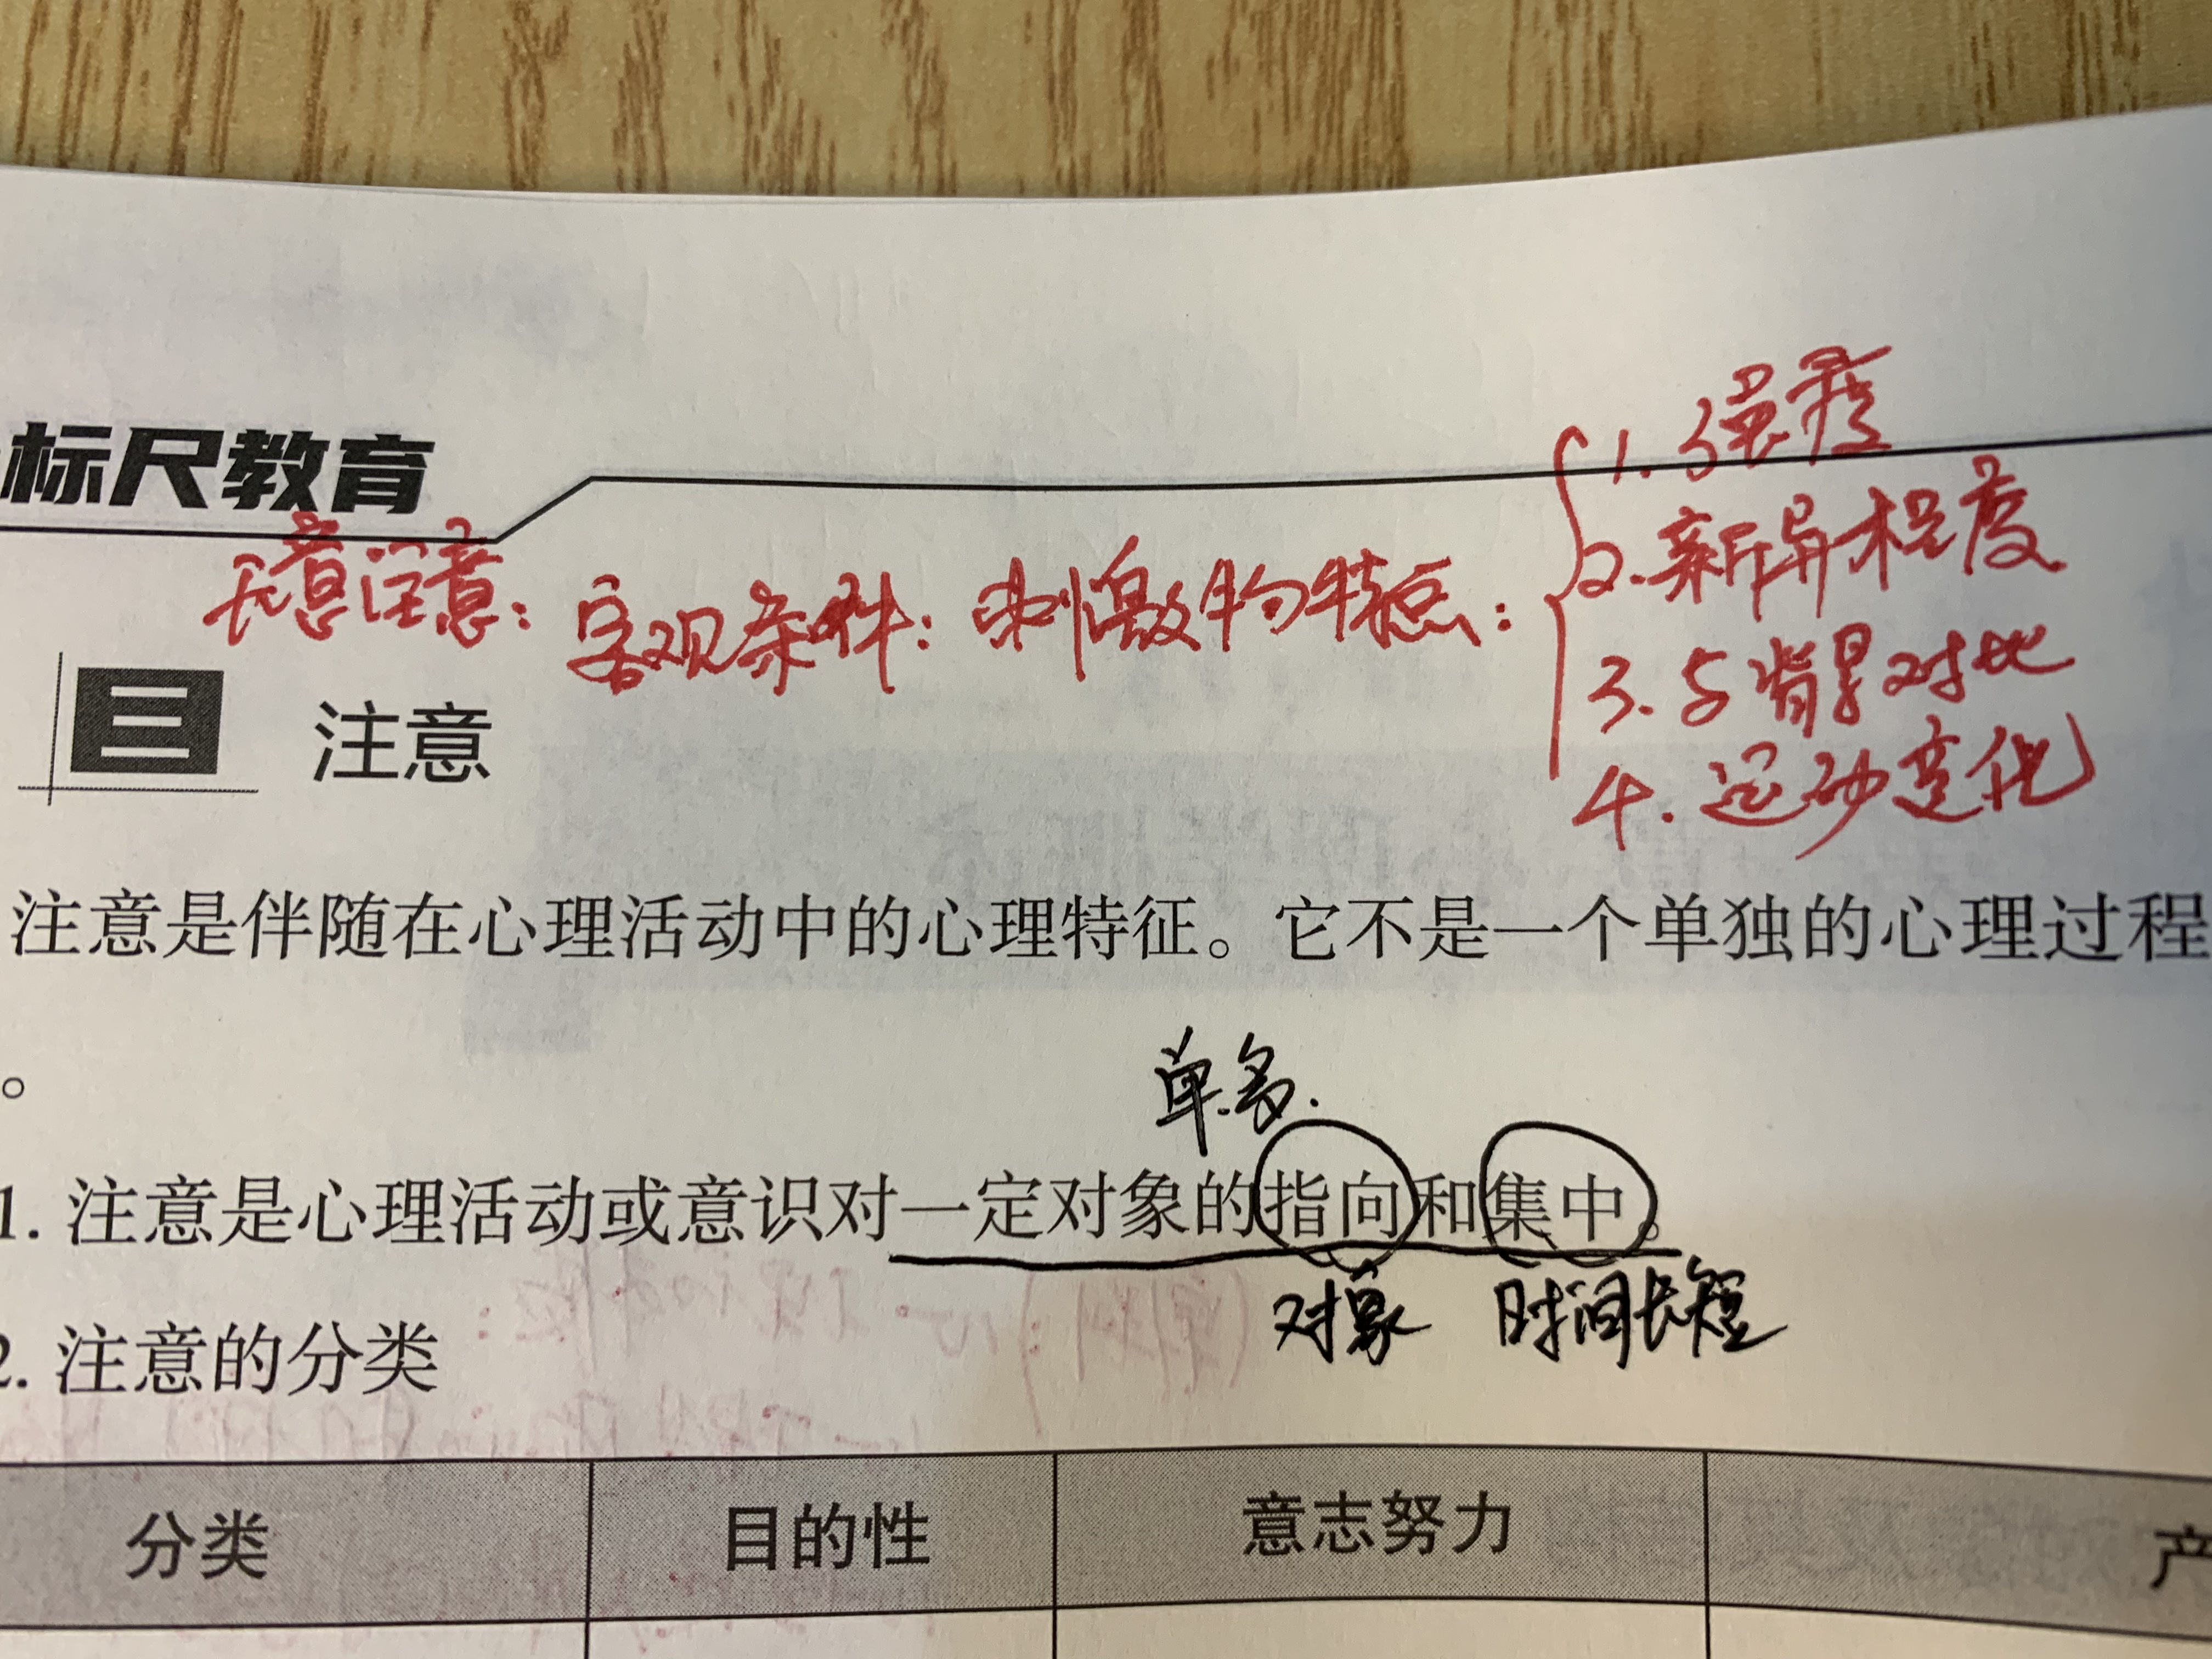 标尺教育
无意注意：客观条件：刺激物特点：
1.强度
2.新异程度
3.与背景对比
4.运动变化
三 注意
注意是伴随在心理活动中的心理特征。它不是一个单独的心理过程
。
单.多.
1. 注意是心理活动或意识对一定对象的指向和集中。
对象 时间长短
2. 注意的分类
分类 目的性 意志努力 产